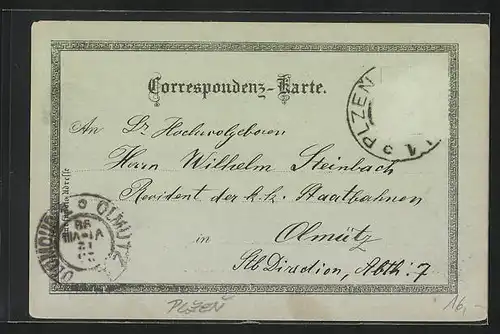 Correspondenz-Karte.
PLZEN 1
An Sr Hochwolgeboren
Herrn Wilhelm Steinbach
Revident der k. k. Staatbahnen
in Olmütz
St. Direction, Abth: 7
OLMÜTZ
PLZEŇ
16,-